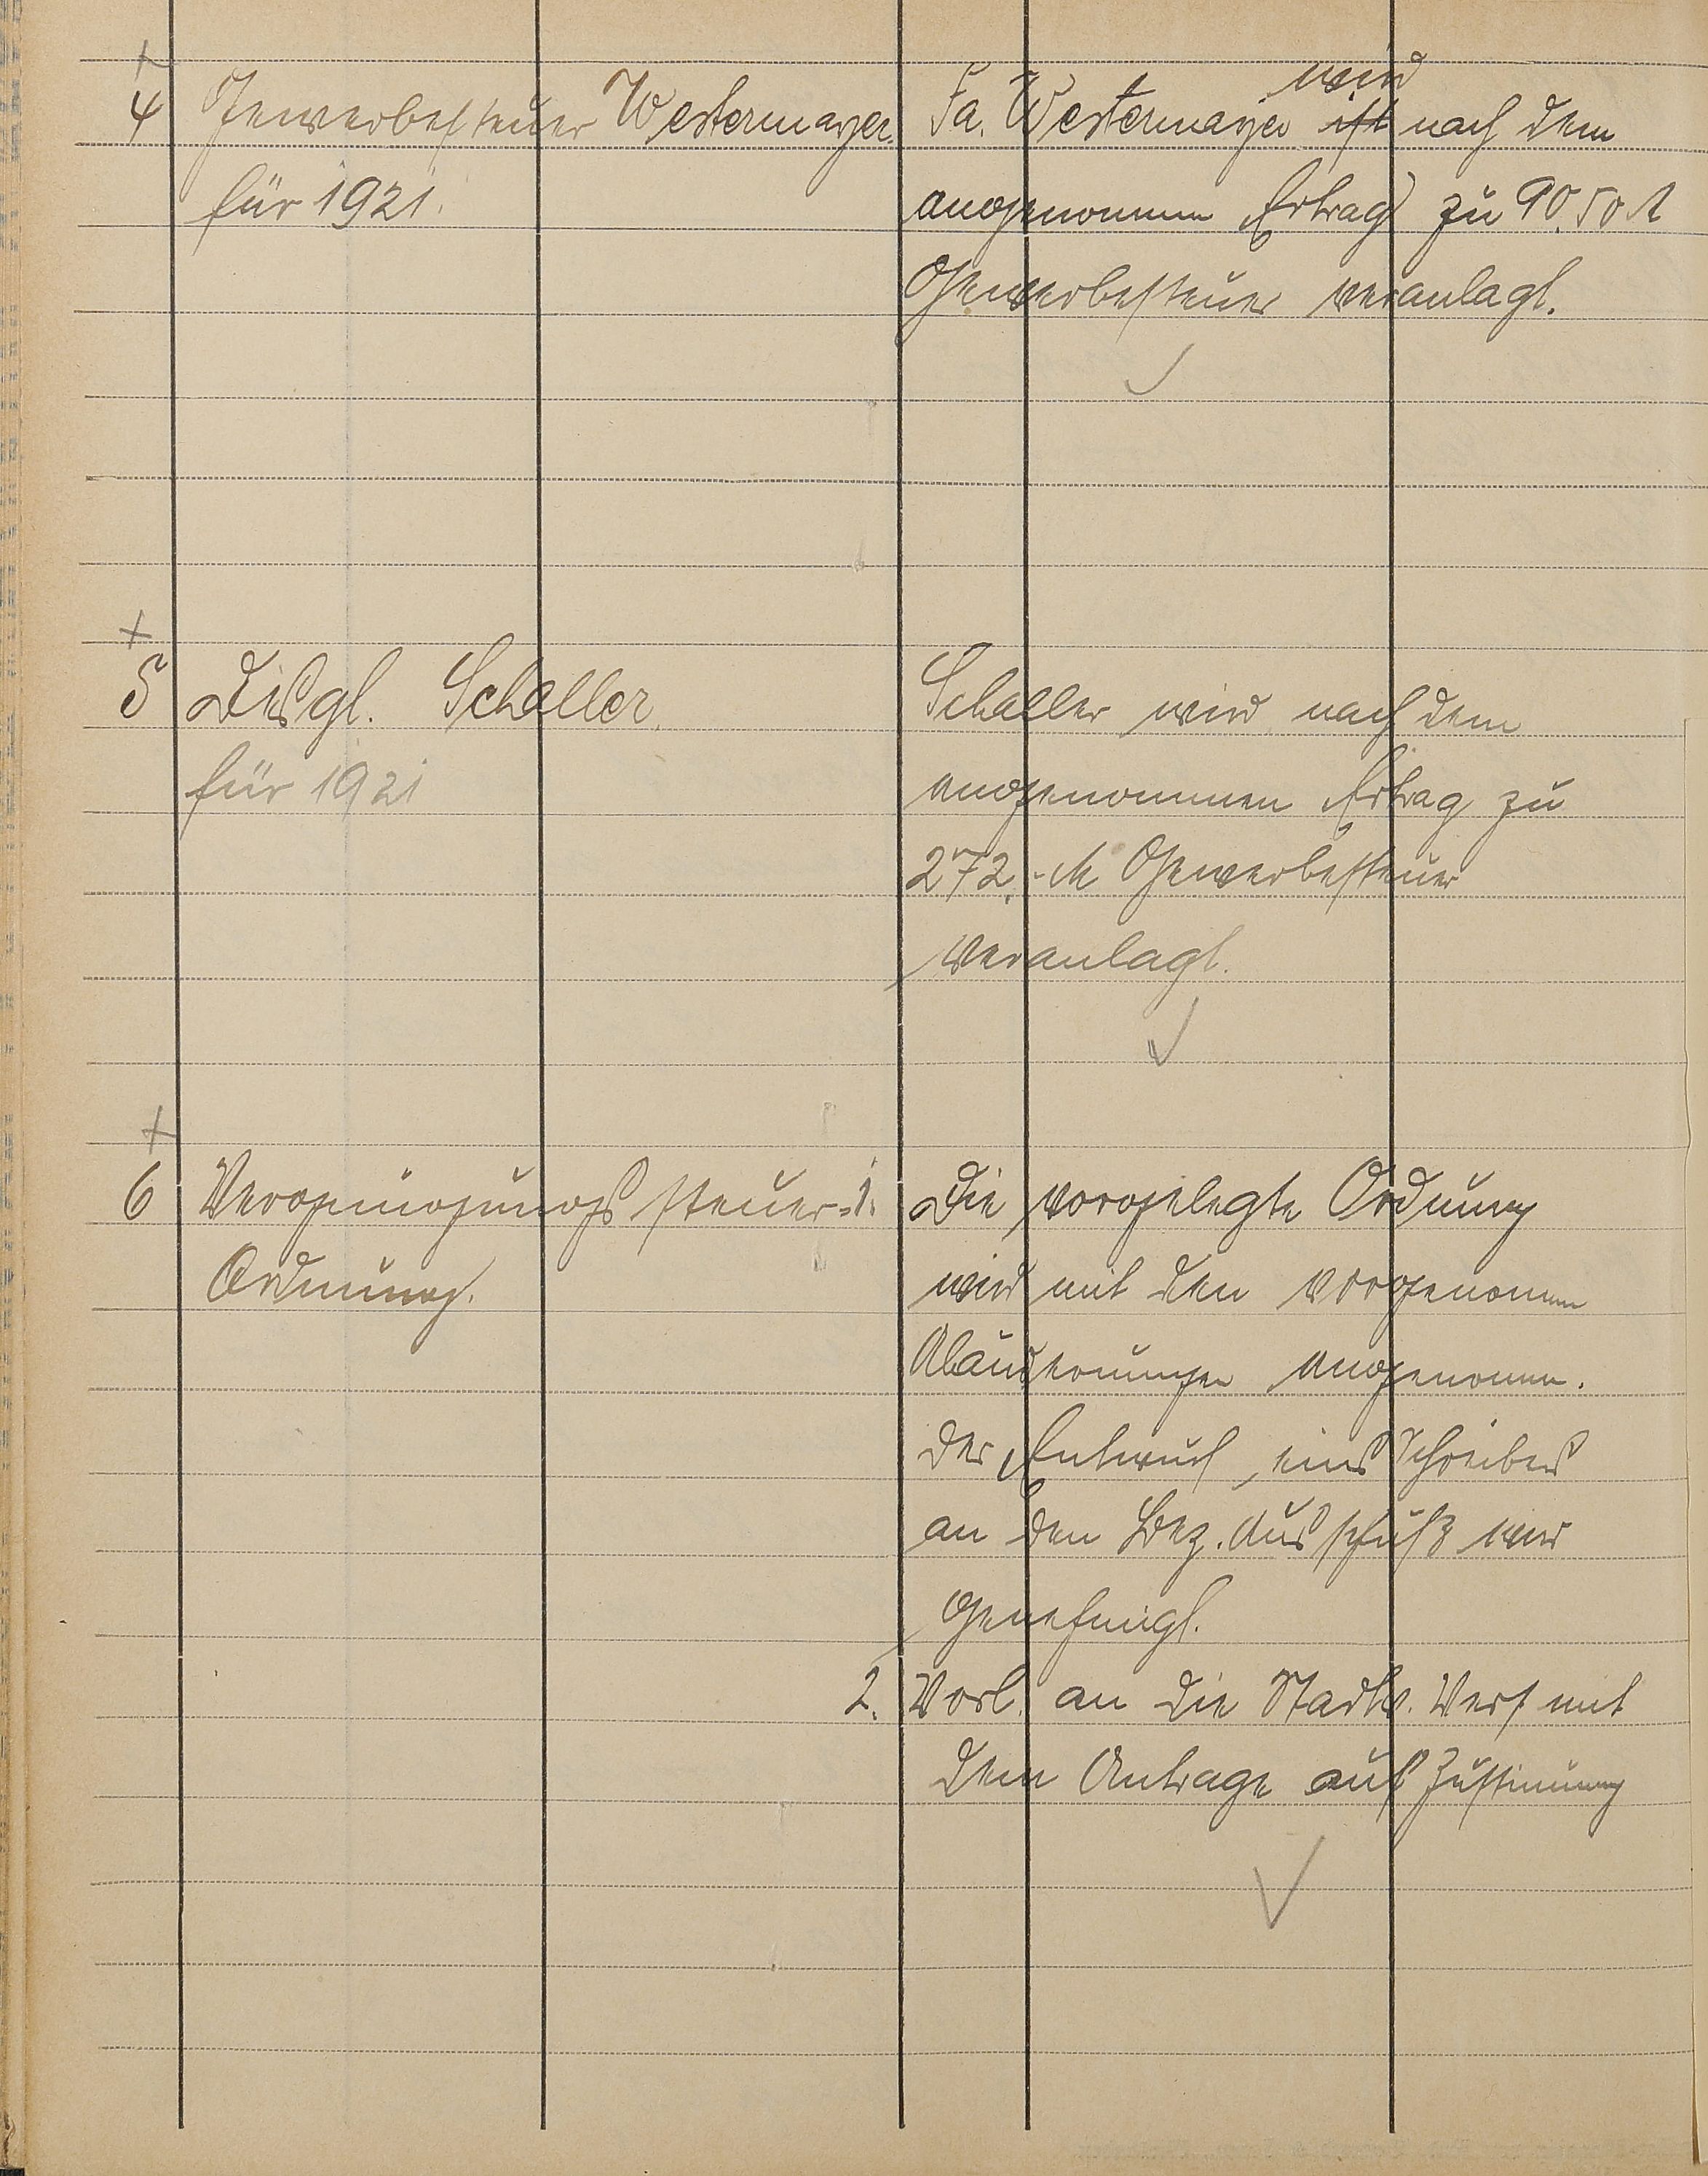 4 Gewerbesteuer Westermayer.
für 1921.
wird
Fa. Westermayer ist nach dem
angenommen Ertrag zu 90.50 M
Gewerbesteuer veranlagt.
5 Desgl. Schaller.
für 1921
Schaller wird nach dem
angenommen Ertrag zu
272.- M Gewerbesteuer
veranlagt.
6 Vergnügungssteuer-
Ordnung.
1. Die vorgelegte Ordnung
wird mit den vorgenomm
Abänderungen angenomm.
Der Entwurf eines Schreibens
an den Bez. Ausschuß wird
genehmigt.
2. Vorl. an die Stadtv. Vers. mit
dem Antrage auf Zustimmung